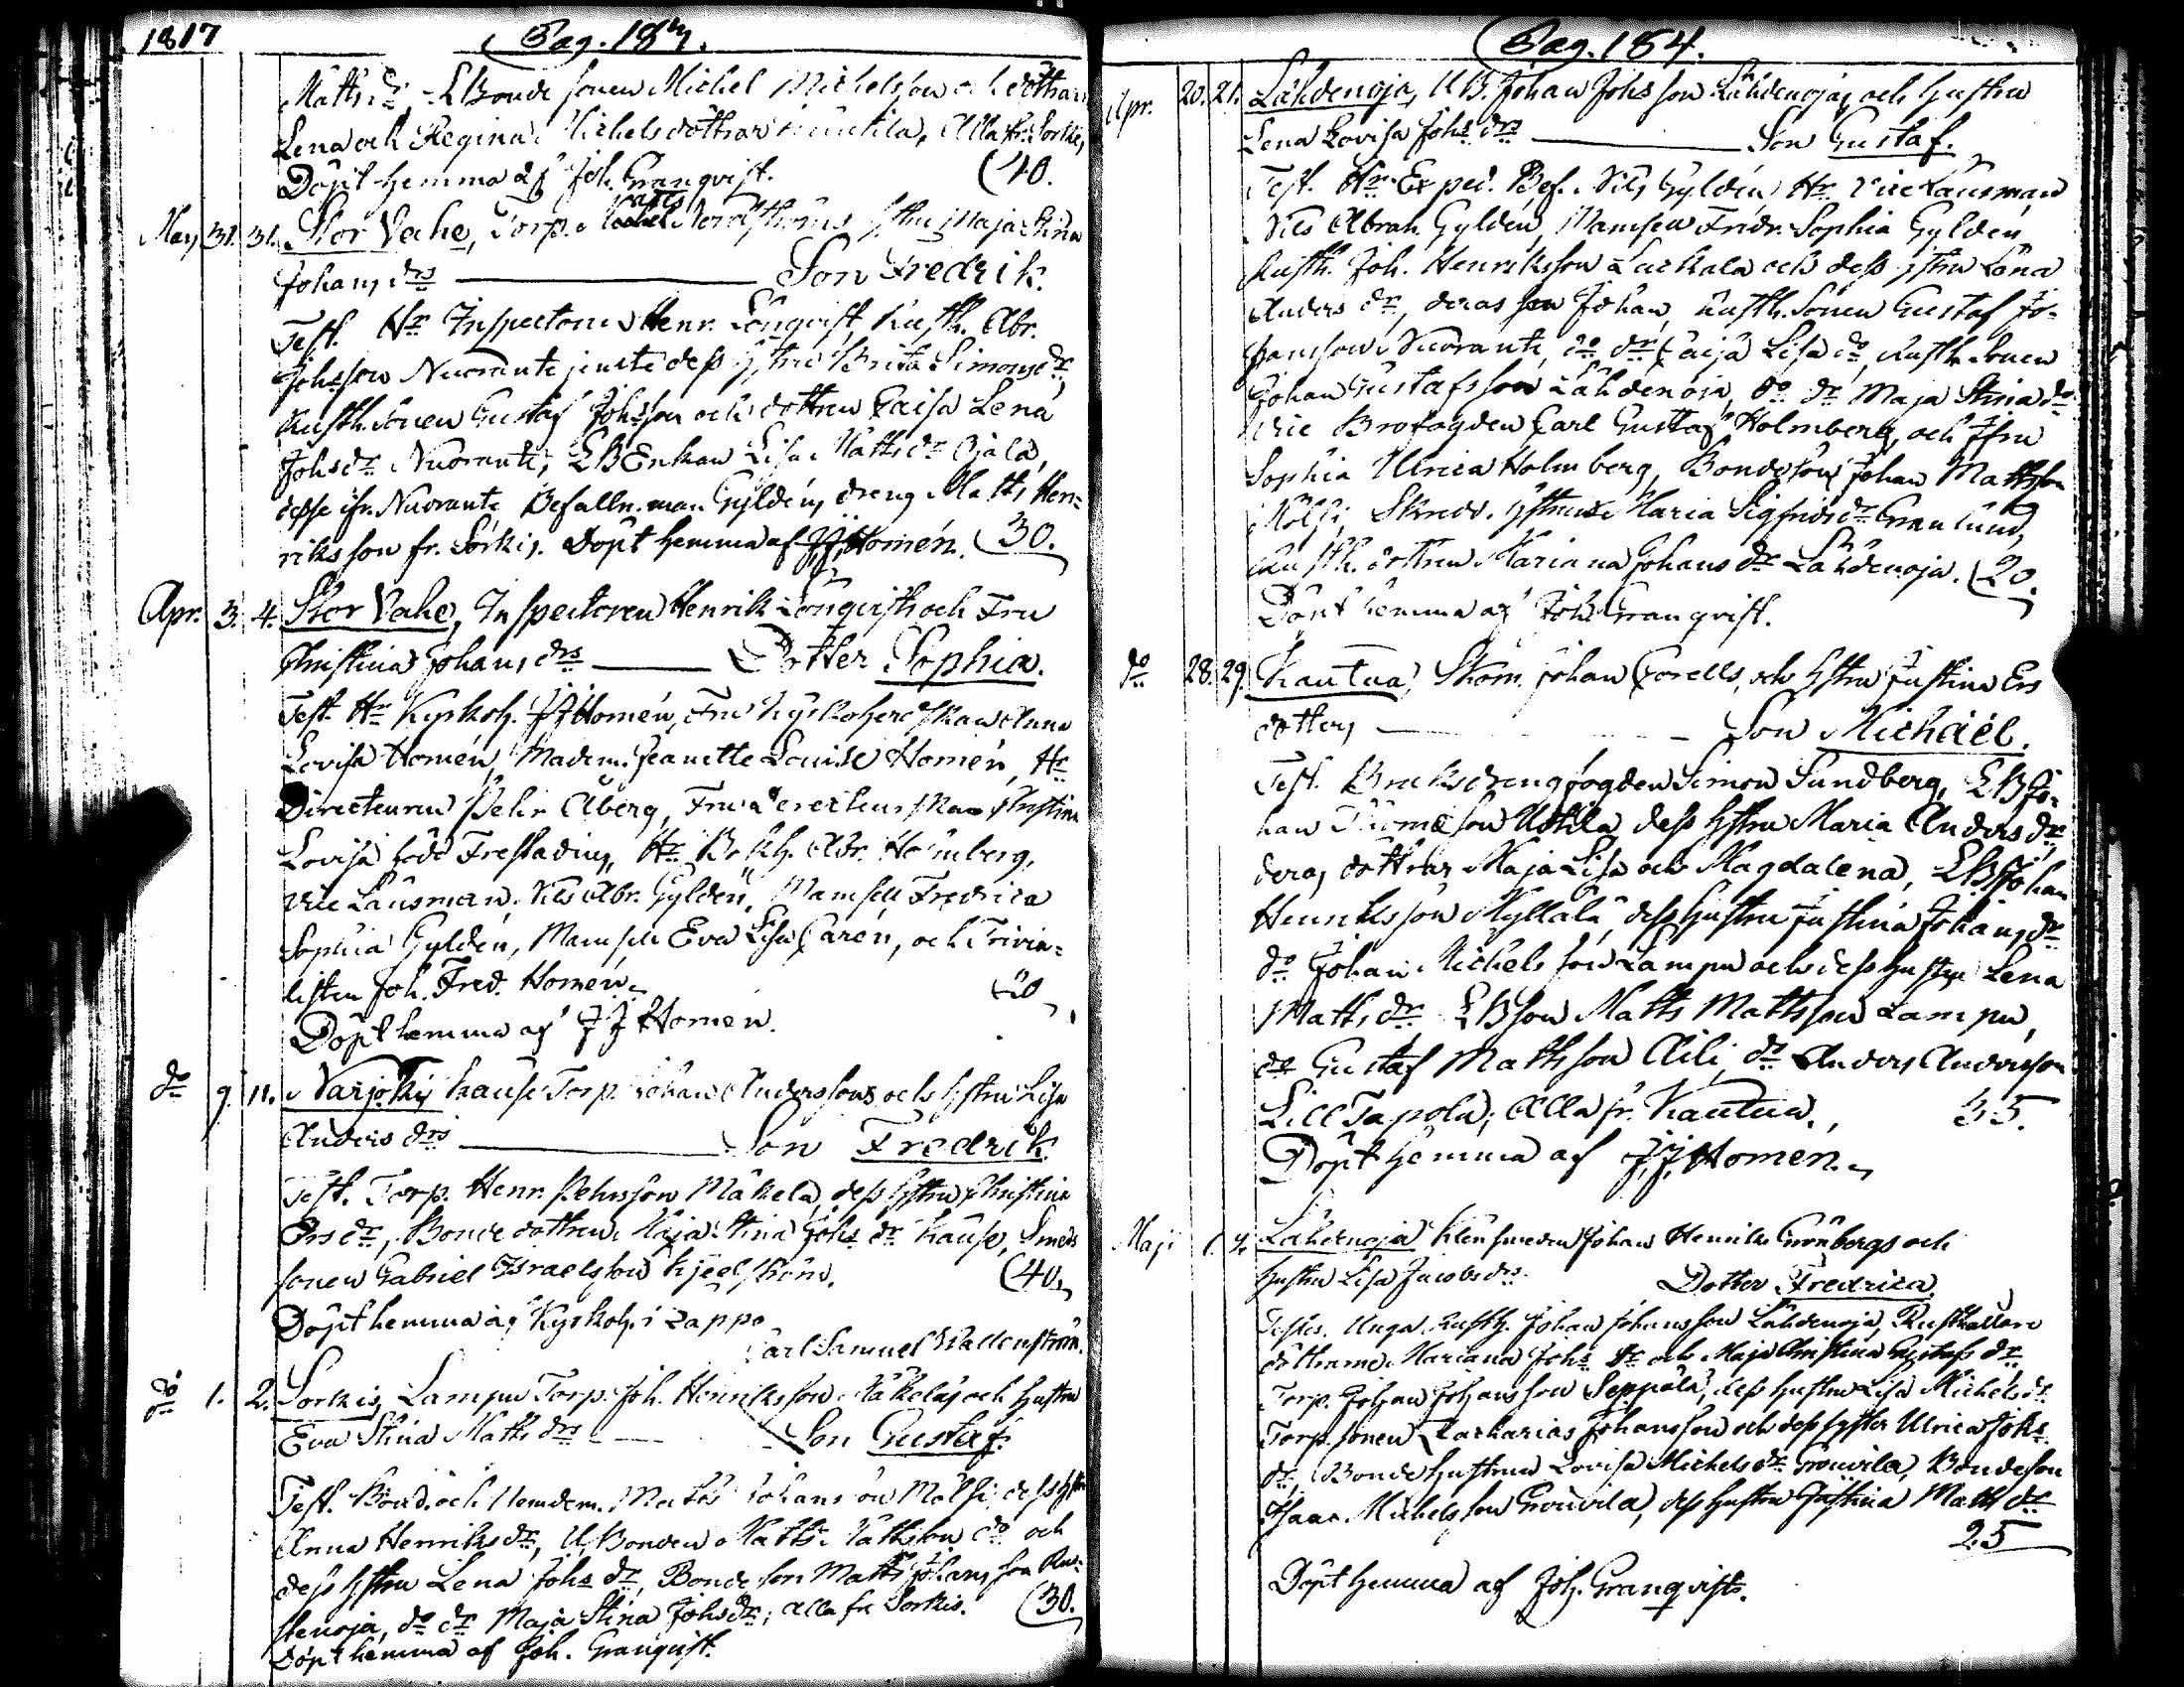 1817
Pag. 183.
Matts dr, LBonde sonen Michel Michelsson och döttrar
Lena och Regina Michelsdöttrar Anttila, Alla fr. Sorkis,
Döpt hemma af Joh. Granqvist. (40.
Mars 31. 31. Stor Vahe, Torp. Nordströms hstru Maja Stina
Johans drs Son Fredrik.
Test. Hr Inspectoren Henr. Lönqvist, Rusth. Abr.
Johsson Nuoranti jemte dess hstru Brita Simons dr
Rusth. Sonen Gustaf Johsson och dottren Caisa Lena
Johs dr Nuoranti, LBEnkan Lisa Matts dr Ojala,
desse ifr. Nuoranti Befalln. man Gyldén, dreng Matts Hen-
riksson fr. Sorkis. Döpt hemma af JJ Homén. (30.
Apr. 3. 4. Stor Vahe, Inspectoren Henrik Lönqvist och Fru
Christina Johans drs Dotter Sophia.
Test. Hr Kyrkoh. JJ Homén, Fru Kyrkoherdskan Anna
Lovisa Homén, Madem. Jeanette Louise Homén, Hr
Directeuren Pehr Åberg, Fru Directeurskan Christina
Lovisa född Frestadius, Hr Bokh. Adr. Holmberg,
Vice Länsman Nils Abr. Gyldén, Mamsell Fredrica
Sophia Gyldén, Mamsell Eva Lisa Carén, och Trivia-
listen Joh. Fred. Homén. 20
Döpt hemma af JJ Homén.
do 9. 11. Narjoki, Kause Torp. Johan Anderssons och hstru Lisa
Anders drs Son Fredrik
Test. Torp. Henr. Pehrsson Mäkelä, dess hstru Christina
Ers dr, Bonde dottren Maja Stina Johs dr Kause, Smeds
sonen Gabriel Israelsson Kjellström. (40.
Döpt hemma af Kyrkoh. i Lappo
Carl Samuel Wallenström.
do 1. 2. Sorkis, Lampu Torp. Joh. Henriksson Mäkeläs och hustru
Eva Stina Matts drs Son Gustaf.
Test. Bond. och Nemdem. Matts Johansson Mölsi, dess hstru
Anna Henriks dr, U,Bonden Matts Mattsson do och
dess hstru Lena Johs dr, Bonde son Matts Johansson Ru-
stenoja, do dr Maja Stina Johs dr; alla fr Sorkis. (30.
Döpt hemma af Joh. Granqvist.
Pag. 184.
Apr. 20. 21. Lähdenoja, UB. Johan Johsson Lähdenojas och hustru
Lena Lovisa Johs drs Son Gustaf.
Test. Hr Exped. Bef. Nils Gyldén, Hr Vice Länsman
Nils Abrah. Gyldén, Mamsell Fredr. Sophia Gyldén
Rusth. Joh. Henriksson Laihala och dess hstru Lena
Anders dr, deras son Johan, Rusth. Sonen Gustaf Jo-
hansson Nuoranti, do dr Caisa Lisa do, Rusth. Sonen
Johan Gustafsson Lähdenoja, do dr Maja Stina do
Vice Brofogden Carl Gustaf Holmberg, och Jfru
Sophia Ulrica Holmberg, Bondeson Johan Mattsson
Mölsi, Skredd. hstrun Maria Sigfrids dr Granlund,
Rusth. dottren Mariana Johans dr Lähdenoja. (20.
Döpt hemma af Joh Granqvist.
do 28. 29. Kautua, Skom. Johan Corells, och hstru Justina Ers
dotters Son Michaël.
Test. Bruksdrengfogden Simon Sundberg, LB Jo-
han Thomasson Uotila, dess hstru Maria Anders dr
deras döttrar Maja Lisa och Magdalena, LB Johan
Henriksson Kyllälä, dess hustru Justina Johans dr
do Johan Michelsson Lampu och dess hustru Lena
Matts dr LBson Matts Mattsson Lampu,
do Gustaf Mattsson Äili, do Anders Andersson
Lill Tapola, Alla fr. Kautua. 35.
Döpt hemma af JJ Homén.
Maji 1. 4. Lähdenoja Klensmeden Johan Henriks Grönbergs och
hustru Lisa Jacobs drs Dotter Fredrica
Testes. Unga Rusth. Johan Johansson Lähdenoja, Rusthållare
döttrarne Mariana Johs dr och Maja Christina Gustafs dr
Torp. Johan Johansson Seppälä, dess hustru Lisa Michels dr
Torp. sonen Zacharias Johansson och dess syster Ulrica Johs
dr, Bonde hustrun Lovisa Michels dr Grouvila, Bondeson
Isaac Michelsson Grouvila, dess hustru Justina Matts dr
25
Döpt hemma af Joh. Granqvist.